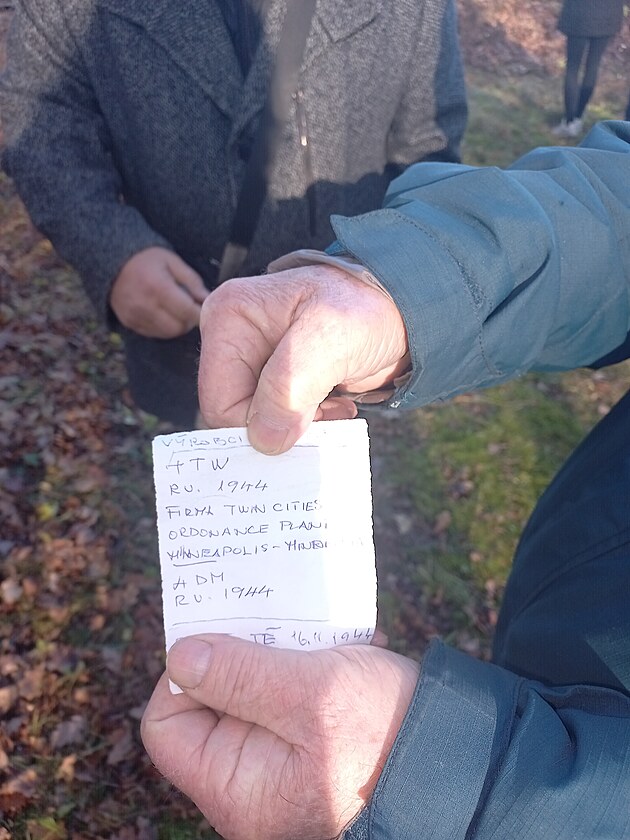 VÝROBCI
4 TW
RV. 1944
FIRMA TWIN CITIES
ORDONANCE PLANT
MINNEAPOLIS -
4 DM
RV. 1944
TĚ 16.11.1944